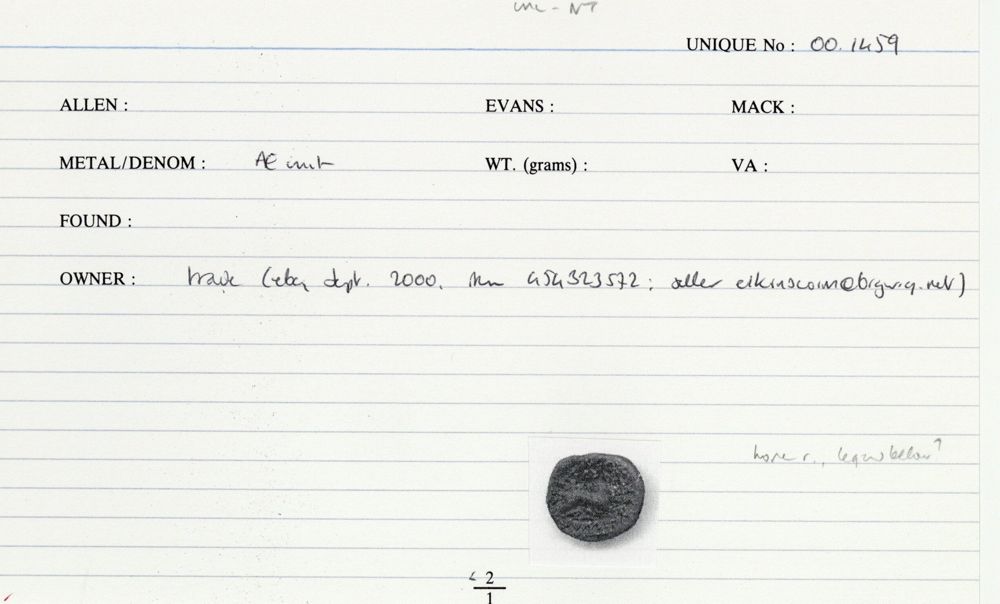 unc - NT
UNIQUE No : 00.1459
ALLEN : EVANS : MACK :
METAL/DENOM : AE unit WT. (grams) : VA :
FOUND :
OWNER : trade (ebay Sept. 2000, item 454323572; seller
horse r., below?
2
1